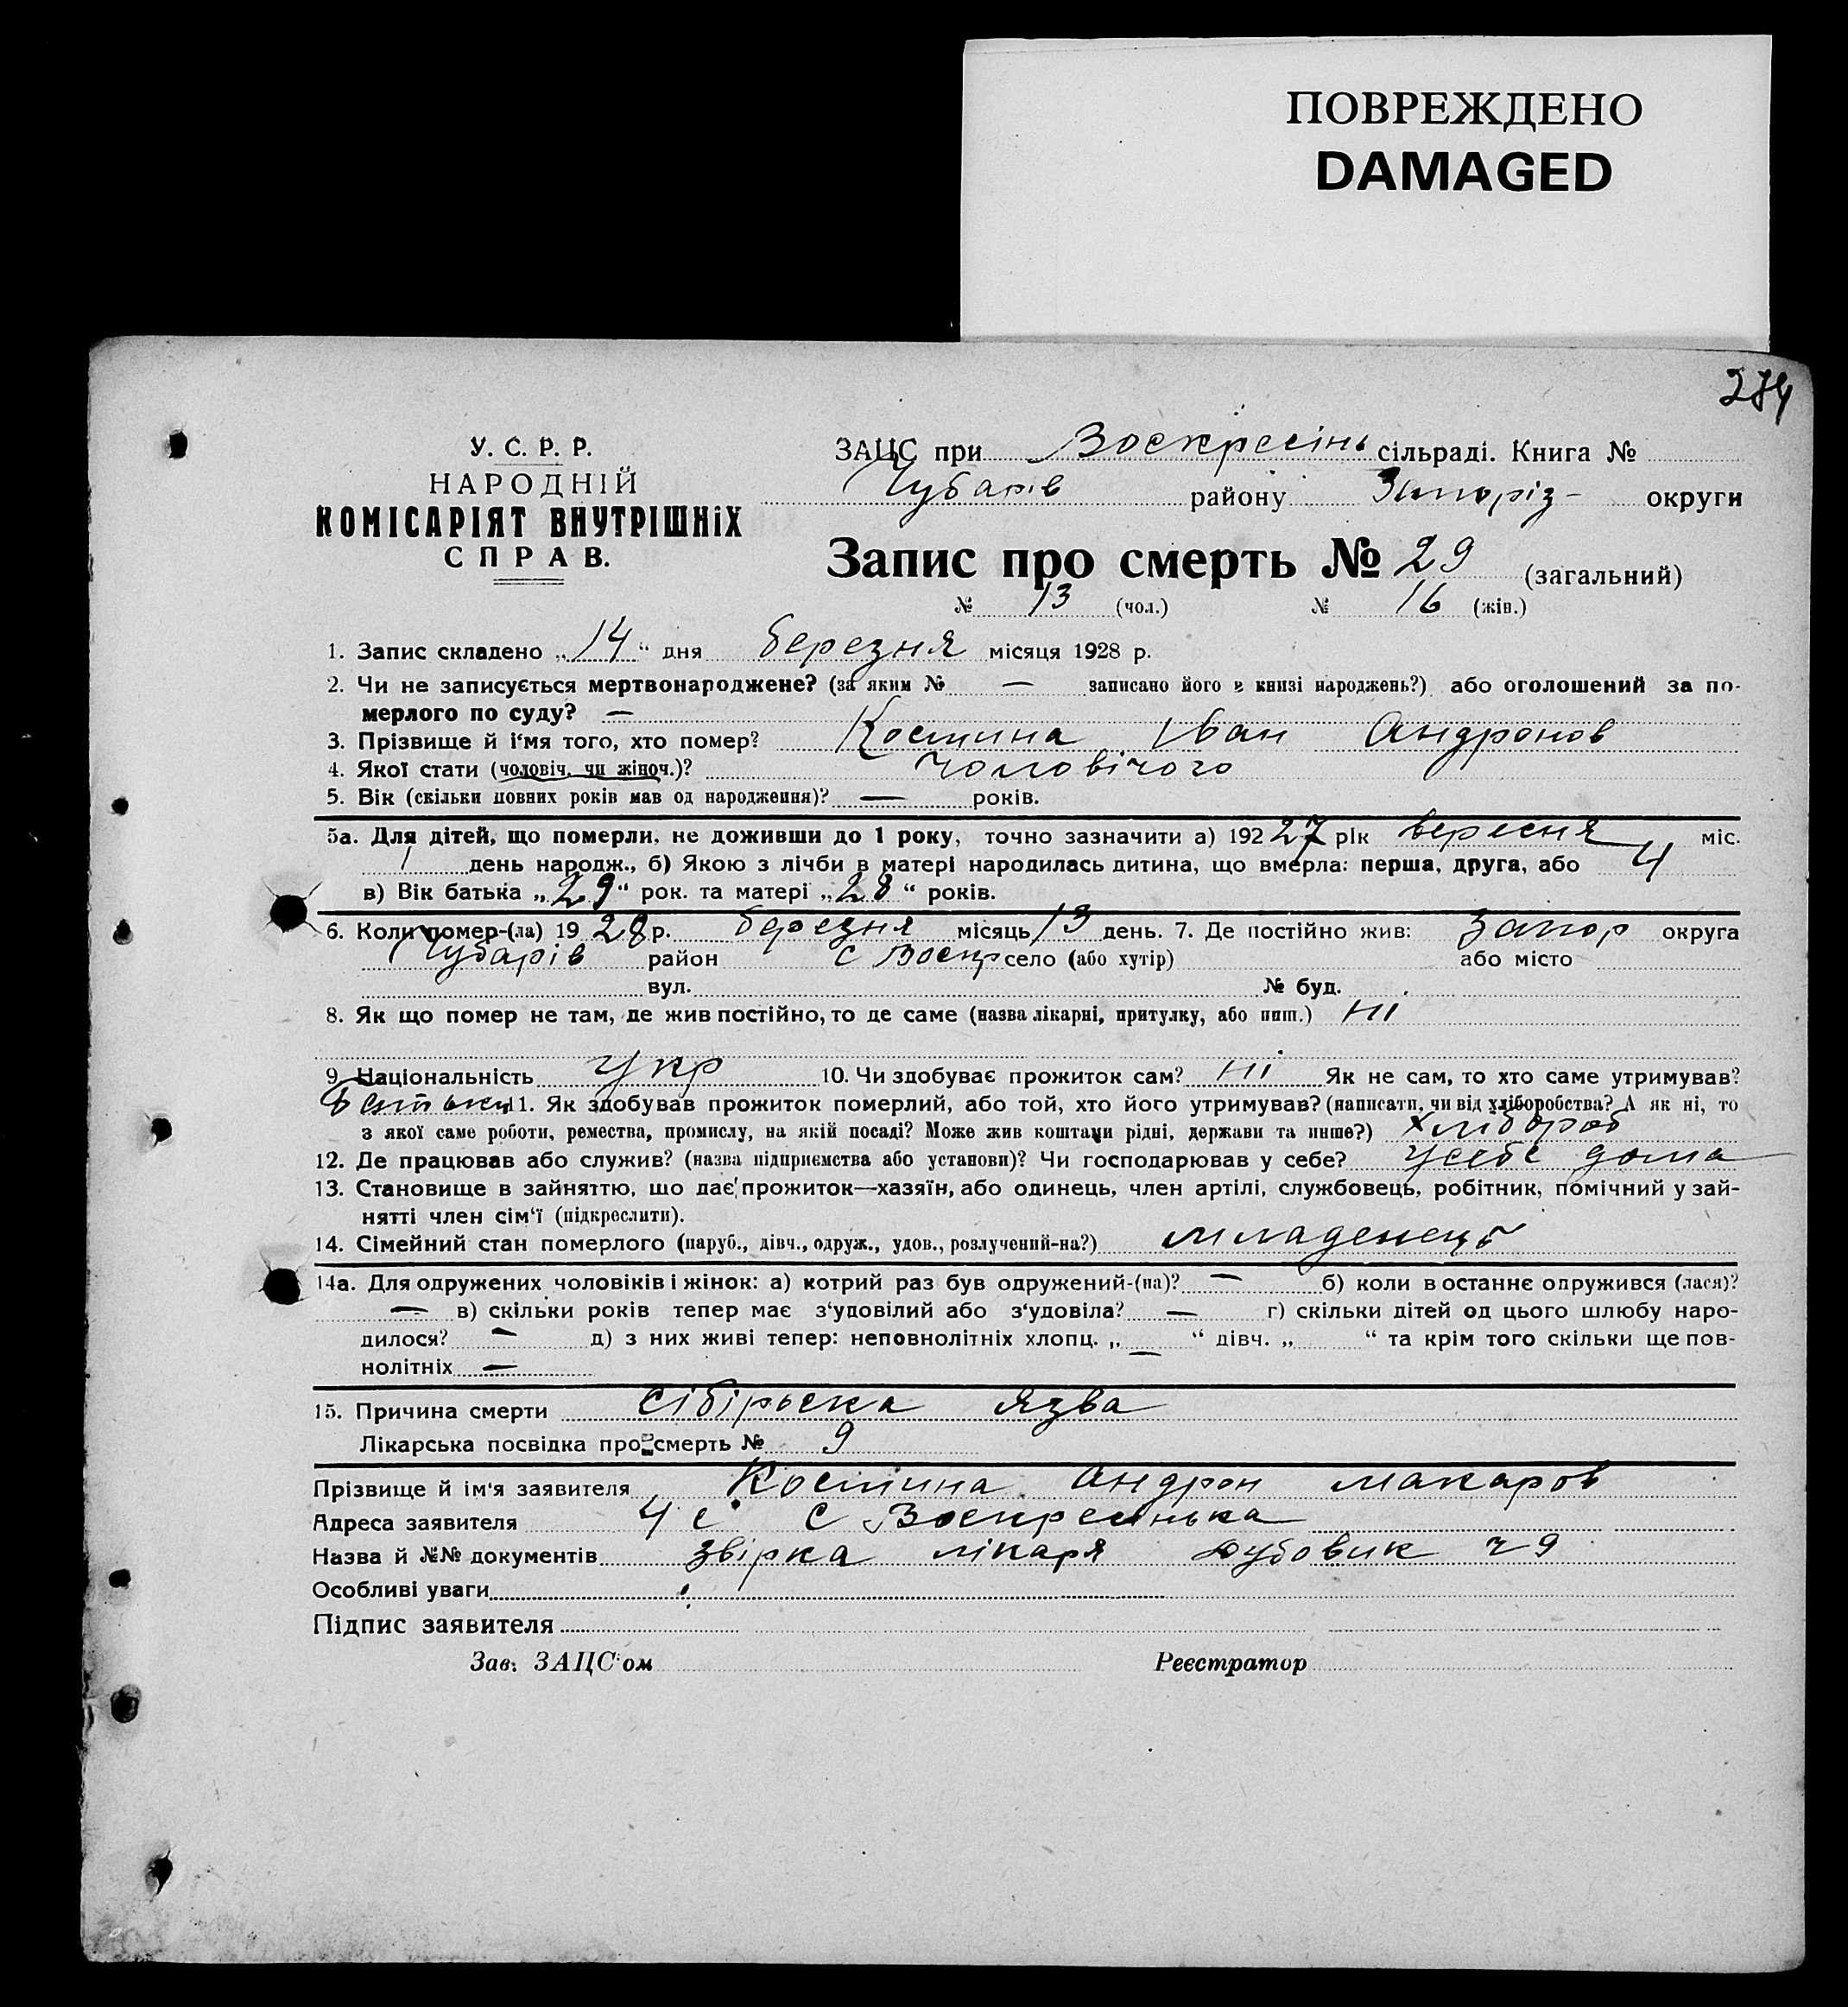 ПОВРЕЖДЕНО
DAMAGED
У. С. Р. Р.
НАРОДНІЙ
КОМІСАРІЯТ ВНУТРІШНіХ
СПРАВ.
ЗАЦС при Воскресінь сільраді. Книга №
Чубарів району Запоріз- округи
Запис про смерть № 29 (загальний)
№ 13 (чол.) № 16 (жін.)
1. Запис складено „14“ дня березня місяця 1928 р.
2. Чи не записується мертвонароджене? (за яким № — записано його в книзі народжень?) або оголошений за по-
мерлого по суду? —
3. Прізвище й і'мя того, хто помер? Костина Іван Андронов
4. Якої стати (чоловіч. чи жіноч.)? чоловічого
5. Вік (скільки повних років мав од народження)? — років.
5а. Для дітей, що померли, не доживши до 1 року, точно зазначити а) 192 27 рік вересня міс.
1 день народж., б) Якою з лічби в матері народилась дитина, що вмерла: перша, друга, або 4
в) Вік батька „29“ рок. та матері „28“ років.
6. Коли помер-(ла) 19 28 р. березня місяць 13 день. 7. Де постійно жив: Запор округа
Чубарів район с Воскр село (або хутір) або місто
вул. № буд.
8. Як що помер не там, де жив постійно, то де саме (назва лікарні, притулку, або инш.) ні
9. Національність укр 10. Чи здобуває прожиток сам? ні Як не сам, то хто саме утримував?
батьки 11. Як здобував прожиток померлий, або той, хто його утримував? (написати, чи від хліборобства? А як ні, то
з якої саме роботи, ремества, промислу, на якій посаді? Може жив коштами рідні, держави та инше?) хлібороб
12. Де працював або служив? (назва підприємства або установи)? Чи господарював у себе? у себе дома
13. Становище в зайняттю, що дає прожиток—хазяїн, або одинець, член артілі, службовець, робітник, помічний у зай-
нятті член сім'ї (підкреслити).
14. Сімейний стан померлого (паруб., дівч., одруж., удов., розлучений-на?) младенець
14а. Для одружених чоловіків і жінок: а) котрий раз був одружений-(на)? — б) коли в останнє одружився (лася)?
— в) скільки років тепер має з'удовілий або з'удовіла? — г) скільки дітей од цього шлюбу наро-
дилося? — д) з них живі тепер: неповнолітніх хлопц. „ — “ дівч. „ “ та крім того скільки ще пов-
нолітніх —
15. Причина смерти сібірьска язва
Лікарська посвідка про смерть № 9
Прізвище й ім'я заявителя Костина Андрон Макаров
Адреса заявителя 4 с с Воскресінька
Назва й №№ документів звірка лікаря Дубовик ч 9
Особливі уваги
Підпис заявителя
Зав. ЗАЦС'ом Реєстратор